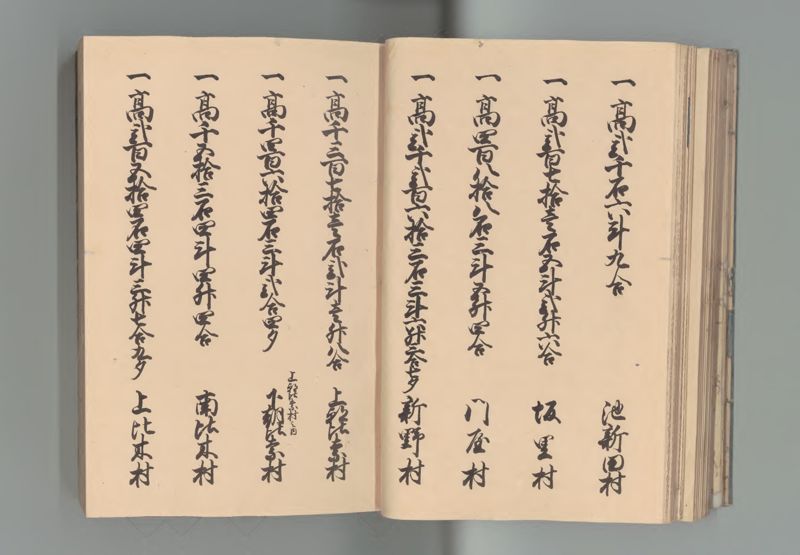 一 高弐千石六斗九合 池新田村
一 高弐百七拾壱石五斗弐升六合 坂里村
一 高四百八拾八石三斗五升四合 門屋村
一 高弐千弐百六拾三石三斗六升三合七夕 新野村
一 高千三百七拾壱石弐斗壱升八合 上朝比奈村
上朝比奈村之内
一 高千四百六拾四石三斗弐合四夕 下朝比奈村
一 高千五拾三石四斗四升四合 南比木村
一 高弐百五拾四石四斗三升七合九夕 上比木村